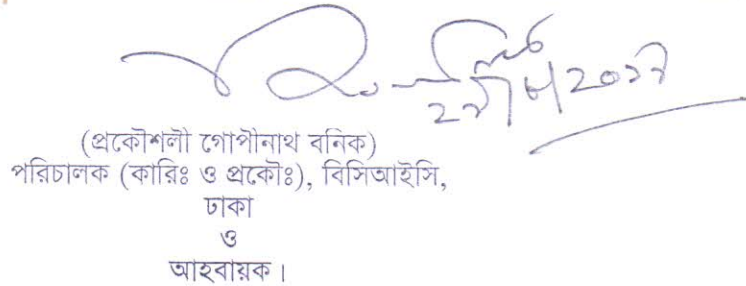 (প্রকৌশলী গোপীনাথ বনিক)
পরিচালক (কারিঃ ও প্রকৌঃ), বিসিআইসি,
ঢাকা
ও
আহবায়ক।